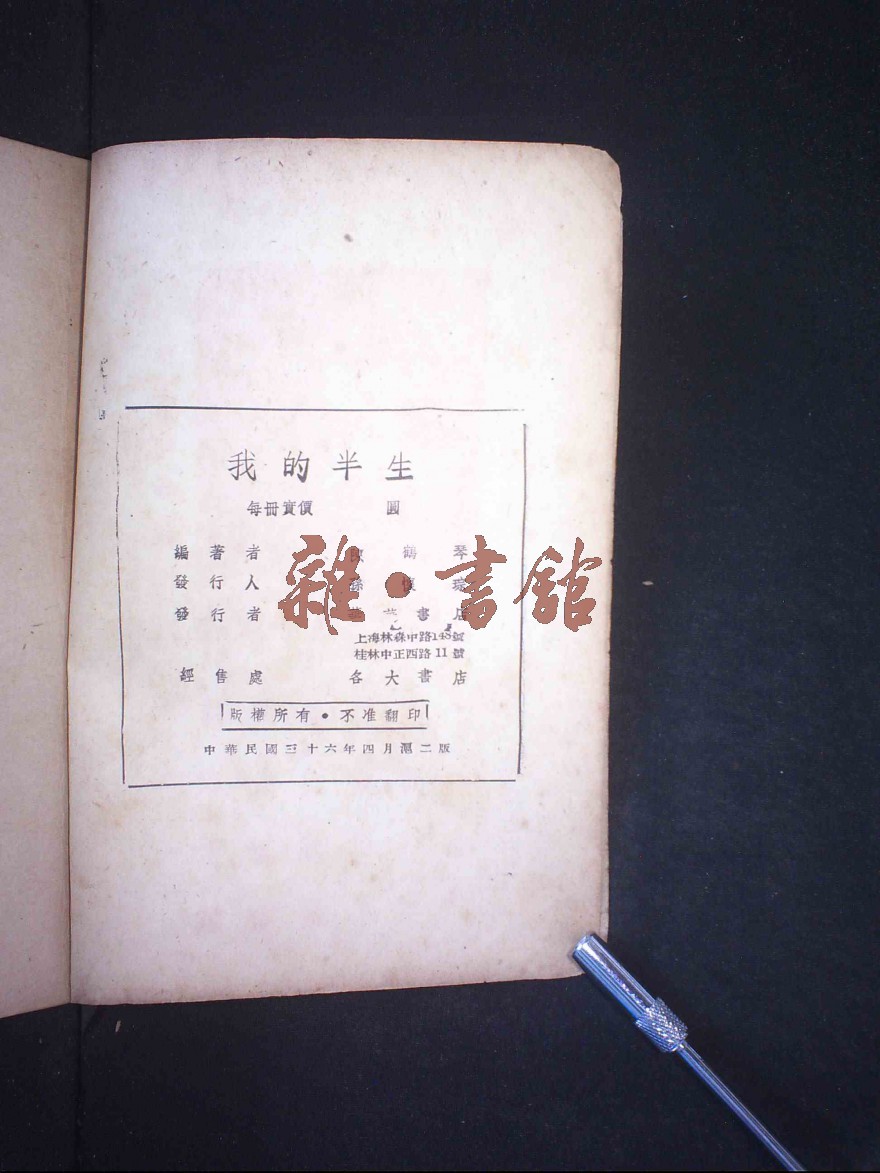 我的半生
每冊實價 圓
編著者 陳鶴琴
發行人 孫懷琮
發行者 華書店
上海林森中路148號
桂林中正西路11號
經售處 各大書店
版權所有・不准翻印
中華民國三十六年四月滬二版
雜・書館